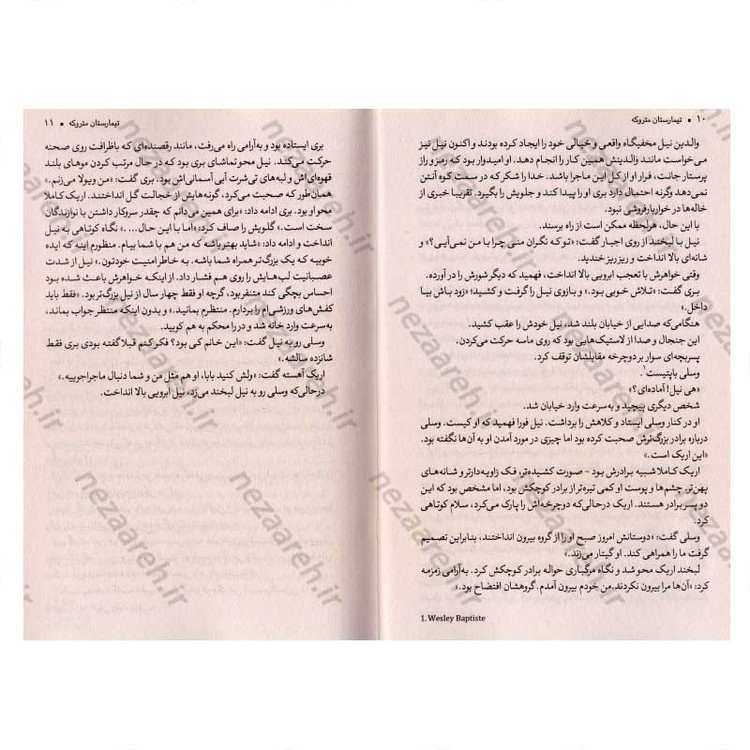 ۱۰ ● تیمارستان متروکه
والدین نیل مخفیگاه واقعی و خیالی خود را ایجاد کرده بودند و اکنون نیل نیز
می‌خواست مانند والدینش همین کار را انجام دهد. او امیدوار بود که رمز و راز
پرستار جانت، فرار او از کل این ماجرا باشد. خدا را شکر که در سمت کوه آنتن
نمی‌دهد وگرنه احتمال دارد بری او را پیدا کند و جلویش را بگیرد. تقریبا خبری از
خاله‌ها در خواربارفروشی نبود.
با این حال، هرلحظه ممکن است از راه برسند.
نیل با لبخند از روی اجبار گفت: «تو که نگران منی چرا با من نمی‌آیی؟» و
شانه‌ای بالا انداخت و ریز ریز خندید.
وقتی خواهرش با تعجب ابرویی بالا انداخت، فهمید که دیگر شورش را در آورده.
بری گفت: «تلاش خوبی بود.» و بازوی نیل را گرفت و کشید؛ «زود باش بیا
داخل.»
هنگامی‌که صدایی از خیابان بلند شد، نیل خودش را عقب کشید.
این جنجال و صدا از لاستیک‌هایی بود که روی ماسه حرکت می‌کردن.
پسربچه‌ای سوار بر دوچرخه مقابلشان توقف کرد.
وسلی باپتیست¹.
«هی نیل! آماده‌ای؟»
شخص دیگری پیچید و به‌سرعت وارد خیابان شد.
او در کنار وسلی ایستاد و کلاهش را برداشت. نیل فورا فهمید که او کیست. وسلی
درباره برادر بزرگ‌ترش صحبت کرده بود اما چیزی در مورد آمدن او به آن‌ها نگفته بود.
«این اریک است.»
اریک کاملا شبیه برادرش بود - صورت کشیده‌تر، فک زاویه‌دارتر و شانه‌های
پهن‌تر. چشم‌ها و پوست او کمی تیره‌تر از برادر کوچکش بود، اما مشخص بود که این
دو پسر برادر هستند. اریک درحالی‌که دوچرخه‌اش را پارک می‌کرد، سلام کوتاهی
کرد.
وسلی گفت: «دوستانش امروز صبح او را از گروه بیرون انداختند، بنابراین تصمیم
گرفت ما را همراهی کند. او گیتار می‌زند.»
لبخند اریک محو شد و نگاه مرگباری حواله برادر کوچکش کرد. به‌آرامی زمزمه
کرد: «آن‌ها مرا بیرون نکردند. من خودم بیرون آمدم. گروهشان افتضاح بود.»
1. Wesley Baptiste
تیمارستان متروکه ● ۱۱
بری ایستاده بود و به‌آرامی راه می‌رفت، مانند رقصنده‌ای که باظرافت روی صحنه
حرکت می‌کند. نیل محو تماشای بری بود که در حال مرتب کردن موهای بلند
قهوه‌ای‌اش و لبه‌های تی‌شرت آبی آسمانی‌اش بود. بری گفت: «من ویولا می‌زنم.»
همان‌طور که صحبت می‌کرد، گونه‌هایش از خجالت گل انداختند. اریک کاملا
محو او بود. بری ادامه داد: «برای همین می‌دانم که چقدر سروکار داشتن با نوازندگان
سخت است.» گلویش را صاف کرد: «اما با این حال....» نگاه کوتاهی به نیل
انداخت و ادامه داد: «شاید بهتر باشه که من هم با شما بیام. منظورم اینه که ایده
خوبیه که یک بزرگ‌تر همراه شما باشه. به خاطر امنیت خودتون.» نیل از شدت
عصبانیت لب‌هایش را روی هم فشار داد. از اینکه خواهرش باعث شده بود
احساس بچگی کند متنفر بود، گرچه او فقط چهار سال از نیل بزرگ‌تر بود. «فقط باید
کفش‌های ورزشی‌ام را بردارم. منتظرم بمانید.» و بدون اینکه منتظر جواب بماند،
به‌سرعت وارد خانه شد و در را محکم به هم کوبید.
وسلی رو به نیل گفت: «این خانم کی بود؟ فکر کنم قبلا گفته بودی بری فقط
شانزده سالشه.»
اریک آهسته گفت: «ولش کنید بابا، او هم مثل من و شما دنبال ماجراجوییه.»
درحالی‌که وسلی رو به نیل لبخند می‌زد، نیل ابرویی بالا انداخت.
nezaareh.ir